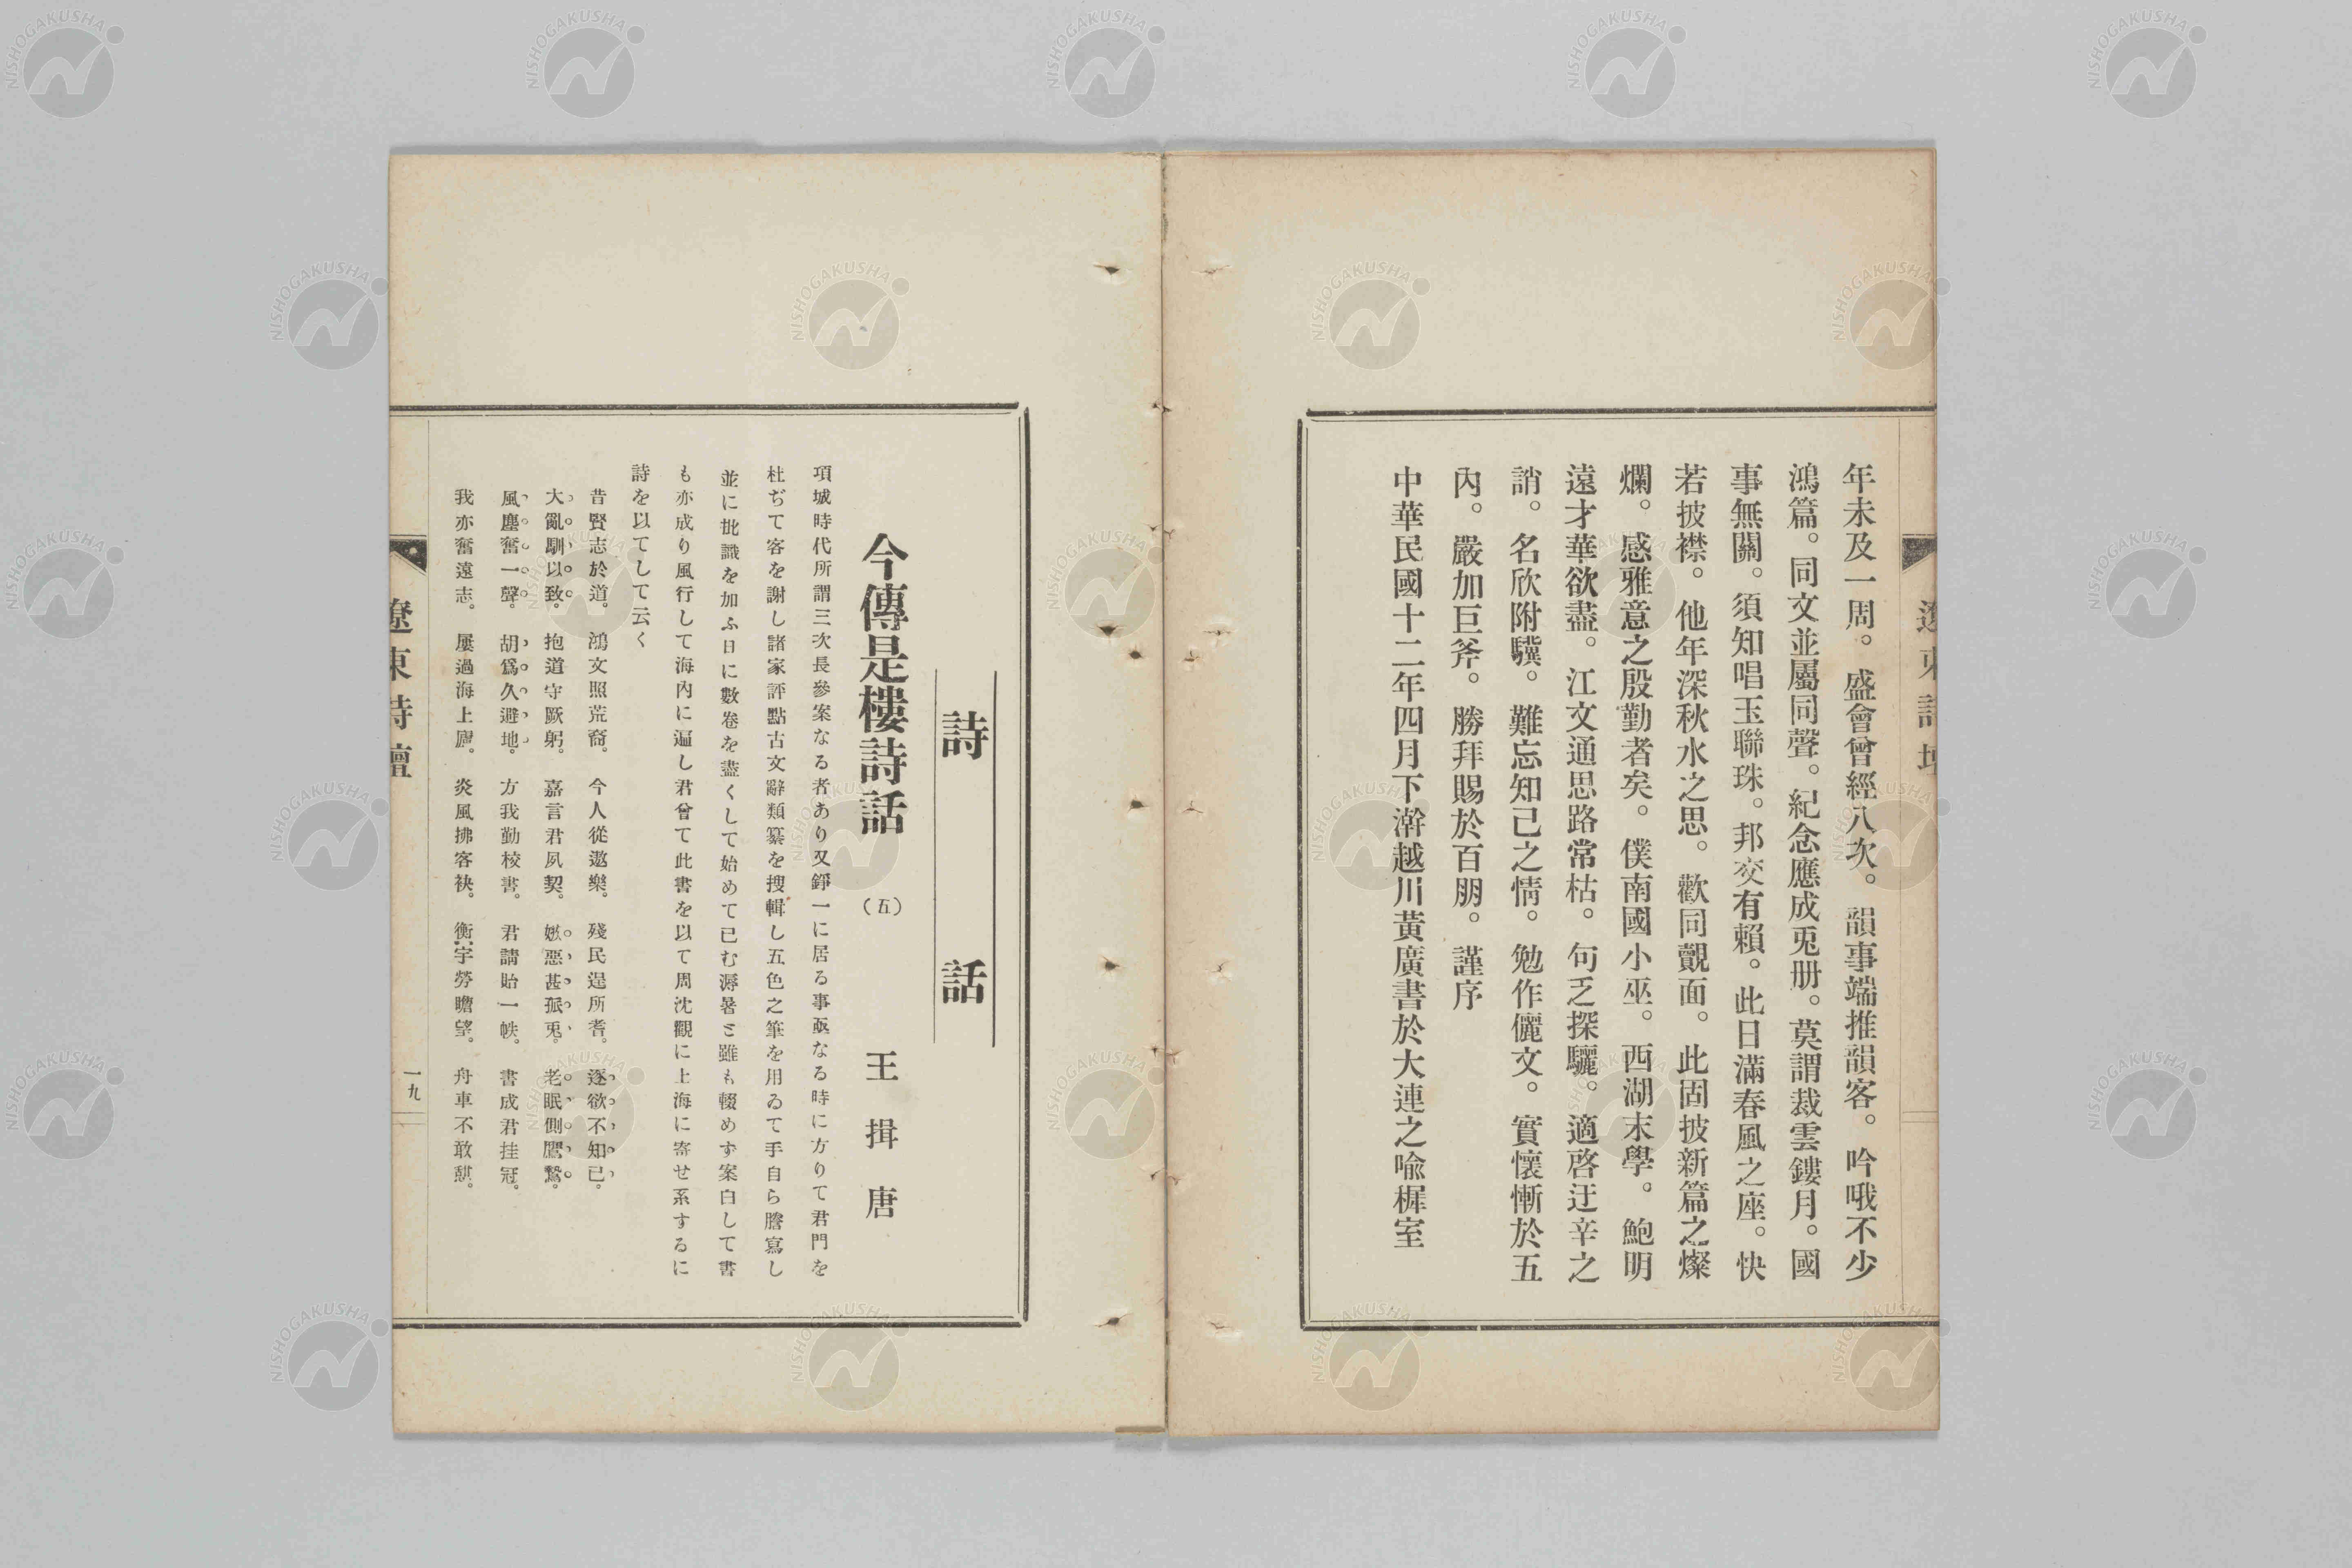 年未及一周。盛會曾經八次。韻事端推韻客。吟哦不少
鴻篇。同文並屬同聲。紀念應成兎册。莫謂裁雲鏤月。國
事無關。須知唱玉聯珠。邦交有賴。此日滿春風之座。快
若披襟。他年深秋水之思。歡同覿面。此固披新篇之燦
爛。感雅意之殷勤者矣。僕南國小巫。西湖末學。鮑明
遠才華欲盡。江文通思路常枯。句乏探驪。適啓迂辛之
誚。名欣附驥。難忘知己之情。勉作儷文。實懷慚於五
內。嚴加巨斧。勝拜賜於百朋。謹序
中華民國十二年四月下澣越川黃廣書於大連之喩樨室
詩話
今傳是樓詩話 (五) 王揖唐
項城時代所謂三次長參案なる者あり又錚一に居る事亟なる時に方りて君門を
杜ぢて客を謝し諸家評點古文辭類纂を搜輯し五色之筆を用ゐて手自ら謄寫し
並に批識を加ふ日に數卷を盡くして始めて已む溽暑と雖も輟めず案白して書
も亦成り風行して海內に遍し君曾て此書を以て周沈觀に上海に寄せ系するに
詩を以てして云く
昔賢志於道。鴻文照荒裔。今人從遨樂。殘民逞所耆。逐欲不知已。
大亂馴以致。抱道守厥躬。嘉言君夙契。嫉惡甚孤兎。老眠側鷹鷙。
風塵奮一聲。胡爲久避地。方我勤校書。君請貽一帙。書成君挂冠。
我亦奮遠志。屢過海上廬。炎風拂客袂。衡宇勞瞻望。舟車不敢憇。
遼東詩壇
一九
NISHOGAKUSHA